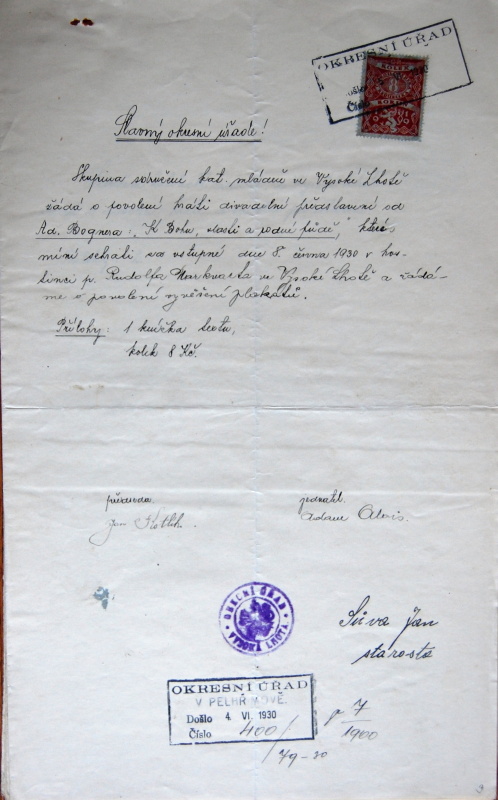 OKRESNÍ ÚŘAD
KOLEK
8
Došlo
Číslo
Slavný okresní úřade!
Skupina sdružení kat. mládeže ve Vysoké Lhotě
žádá o povolení hráti divadelní představení od
Ad. Bognera: „K Bohu, vlasti a rodné půdě," které
míní sehrati za vstupné dne 8. června 1930 v hos-
tinci p. Rudolfa Markvarta ve Vysoké Lhotě a žádá-
me o povolení vyvěšení plakátů.
Přílohy: 1 knížka textu,
kolek 8 Kč.
předseda. jednatel.
Jan Adam Alois.
OBECNÍ ÚŘAD
VYSOKÁ LHOTA
Sůva Jan
starosta
OKRESNÍ ÚŘAD
V PELHŘIMOVĚ.
Došlo 4. VI. 1930
Číslo 400/
79-30
7
1900